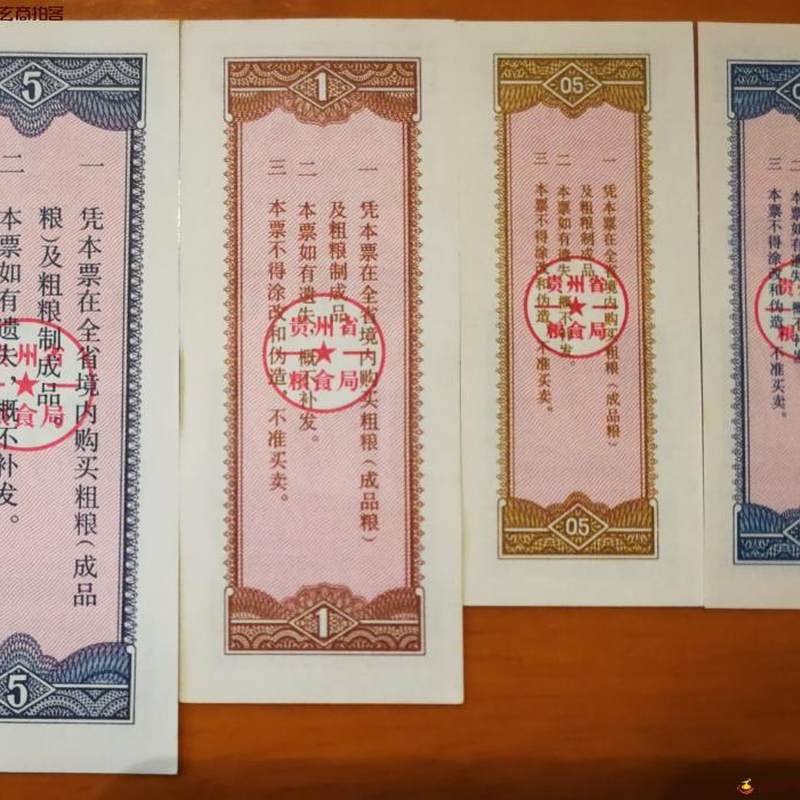 玄商拍客
5
一 凭本票在全省境内购买粗粮(成品
粮)及粗粮制成品。
二 本票如有遗失,概不补发。
州省
食局
5
1
一 凭本票在全省境内购买粗粮(成品粮)
及粗粮制成品。
二 本票如有遗失,概不补发。
三 本票不得涂改和伪造,不准买卖。
贵州省
粮食局
1
05
一 凭本票在全省境内购买粗粮(成品粮)
及粗粮制成品。
二 本票如有遗失,概不补发。
三 本票不得涂改和伪造,不准买卖。
贵州省
粮食局
05
二 本票如有遗失,概不补发。
三 本票不得涂改和伪造,不准买卖。
贵